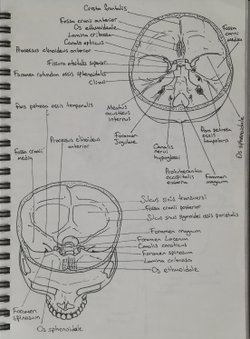 Crista frontalis
Fossa cranii anterior
Os ethmoidale
Lamina cribrosa
Canalis opticus
Processus clinoideus anterior
Fissura orbitalis superior
Foramen rotundum ossis sphenoidalis
Clivus
Fossa cranii media
Pars petrosa ossis temporalis
Meatus acusticus internus
Foramen jugulare
Canalis nervi hypoglossi
Pars petrosa ossis temporalis
Os sphenoidale
Protuberantia occipitalis
Foramen magnum
Fossa cranii media
Processus clinoideus anterior
Sulcus sinus transversi
Fossa cranii posterior
Sulcus sinus sigmoidei ossis parietalis
Foramen magnum
Foramen lacerum
Canalis caroticus
Foramen spinosum
Lamina cribrosa
Os ethmoidale
Foramen spinosum
Os sphenoidale